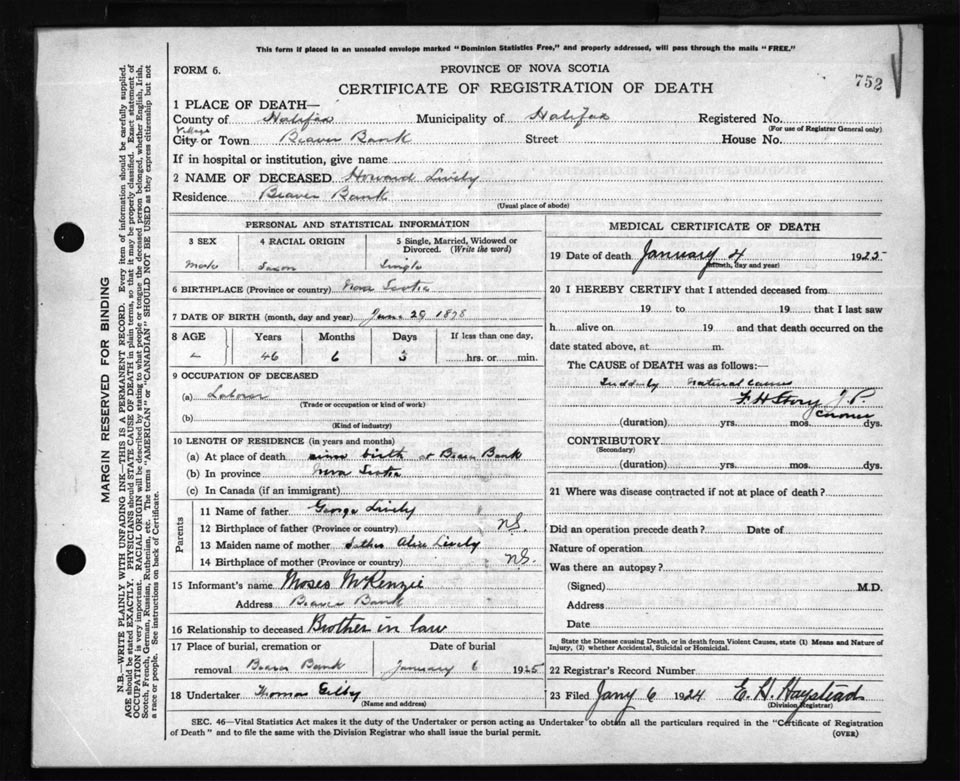 This form if placed in an unsealed envelope marked "Dominion Statistics Free," and properly addressed, will pass through the mails "FREE."
FORM 6.
PROVINCE OF NOVA SCOTIA
752
CERTIFICATE OF REGISTRATION OF DEATH
1 PLACE OF DEATH—
County of Halifax Municipality of Halifax Registered No.
(For use of Registrar General only)
Village
City or Town Beaver Bank Street House No.
If in hospital or institution, give name
2 NAME OF DECEASED Howard Lively
Residence Beaver Bank
(Usual place of abode)
PERSONAL AND STATISTICAL INFORMATION
3 SEX 4 RACIAL ORIGIN 5 Single, Married, Widowed or Divorced. (Write the word)
Male Saxon Single
6 BIRTHPLACE (Province or country) Nova Scotia
7 DATE OF BIRTH (month, day and year) June 29 1878
8 AGE Years Months Days If less than one day,
46 6 3 hrs. or min.
9 OCCUPATION OF DECEASED
(a) Laborer
(Trade or occupation or kind of work)
(b)
(Kind of industry)
10 LENGTH OF RESIDENCE (in years and months)
(a) At place of death since birth at Beaver Bank
(b) In province Nova Scotia
(c) In Canada (if an immigrant)
Parents
11 Name of father George Lively
12 Birthplace of father (Province or country) N.S.
13 Maiden name of mother Alice Lively
14 Birthplace of mother (Province or country) N.S.
15 Informant's name Moses McKenzie
Address Beaver Bank
16 Relationship to deceased Brother in law
17 Place of burial, cremation or Date of burial
removal Beaver Bank January 6 1925
18 Undertaker Thomas Gilby
(Name and address)
MEDICAL CERTIFICATE OF DEATH
19 Date of death January 4 1925
(Month, day and year)
20 I HEREBY CERTIFY that I attended deceased from
19 to 19 that I last saw
h alive on 19 and that death occurred on the
date stated above, at m.
The CAUSE of DEATH was as follows:
Suddenly Natural causes
F. H Story J. P.
Coroner
(duration) yrs. mos. dys.
CONTRIBUTORY
(Secondary)
(duration) yrs. mos. dys.
21 Where was disease contracted if not at place of death?
Did an operation precede death? Date of
Nature of operation
Was there an autopsy?
(Signed) M.D.
Address
Date
State the Disease causing Death, or in death from Violent Causes, state (1) Means and Nature of
Injury, (2) whether Accidental, Suicidal or Homicidal.
22 Registrar's Record Number
23 Filed Jany 6 1924 E. H. Haystead
(Division Registrar)
SEC. 46—Vital Statistics Act makes it the duty of the Undertaker or person acting as Undertaker to obtain all the particulars required in the "Certificate of Registration
of Death" and to file the same with the Division Registrar who shall issue the burial permit.
(OVER)
MARGIN RESERVED FOR BINDING
N.B.—WRITE PLAINLY WITH UNFADING INK—THIS IS A PERMANENT RECORD. Every item of information should be carefully supplied.
AGE should be stated EXACTLY. PHYSICIANS should STATE CAUSE OF DEATH in plain terms, so that it may be properly classified. Exact statement of
OCCUPATION is very important. RACIAL ORIGIN will be described by stating to what people or tongue the deceased person belonged, whether English, Irish,
Scotch, French, German, Russian, Ruthenian, etc. The terms "AMERICAN" or "CANADIAN" SHOULD NOT BE USED as they express citizenship but not
a race or people. See instructions on back of Certificate.